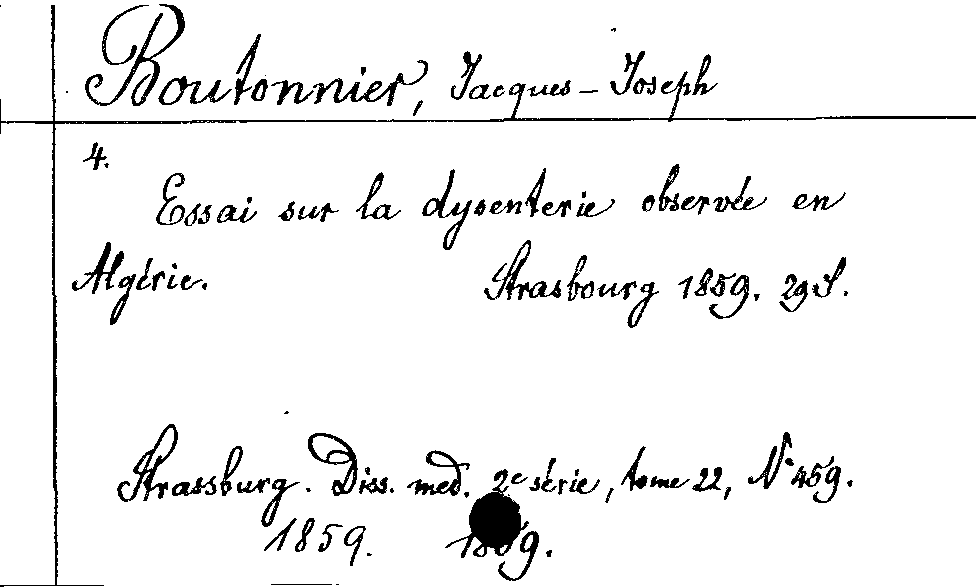 Boutonnier, Jacques-Joseph
4.
Essai sur la dysenterie observée en
Algérie. Strasbourg 1859. 29 S.
Strassburg. Diss. med. 2e série, tome 22, N° 459.
1859. 1859.